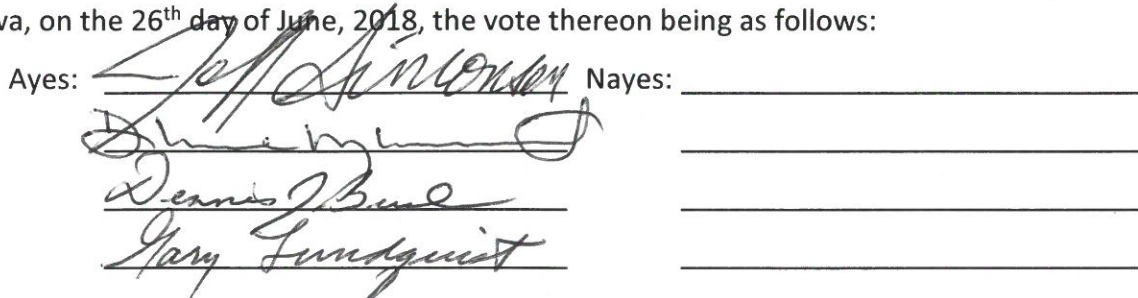 va, on the 26th day of June, 2018, the vote thereon being as follows:
Ayes: Jeff Simonsen Nayes:
Dennis J Bush
Gary Lundquist